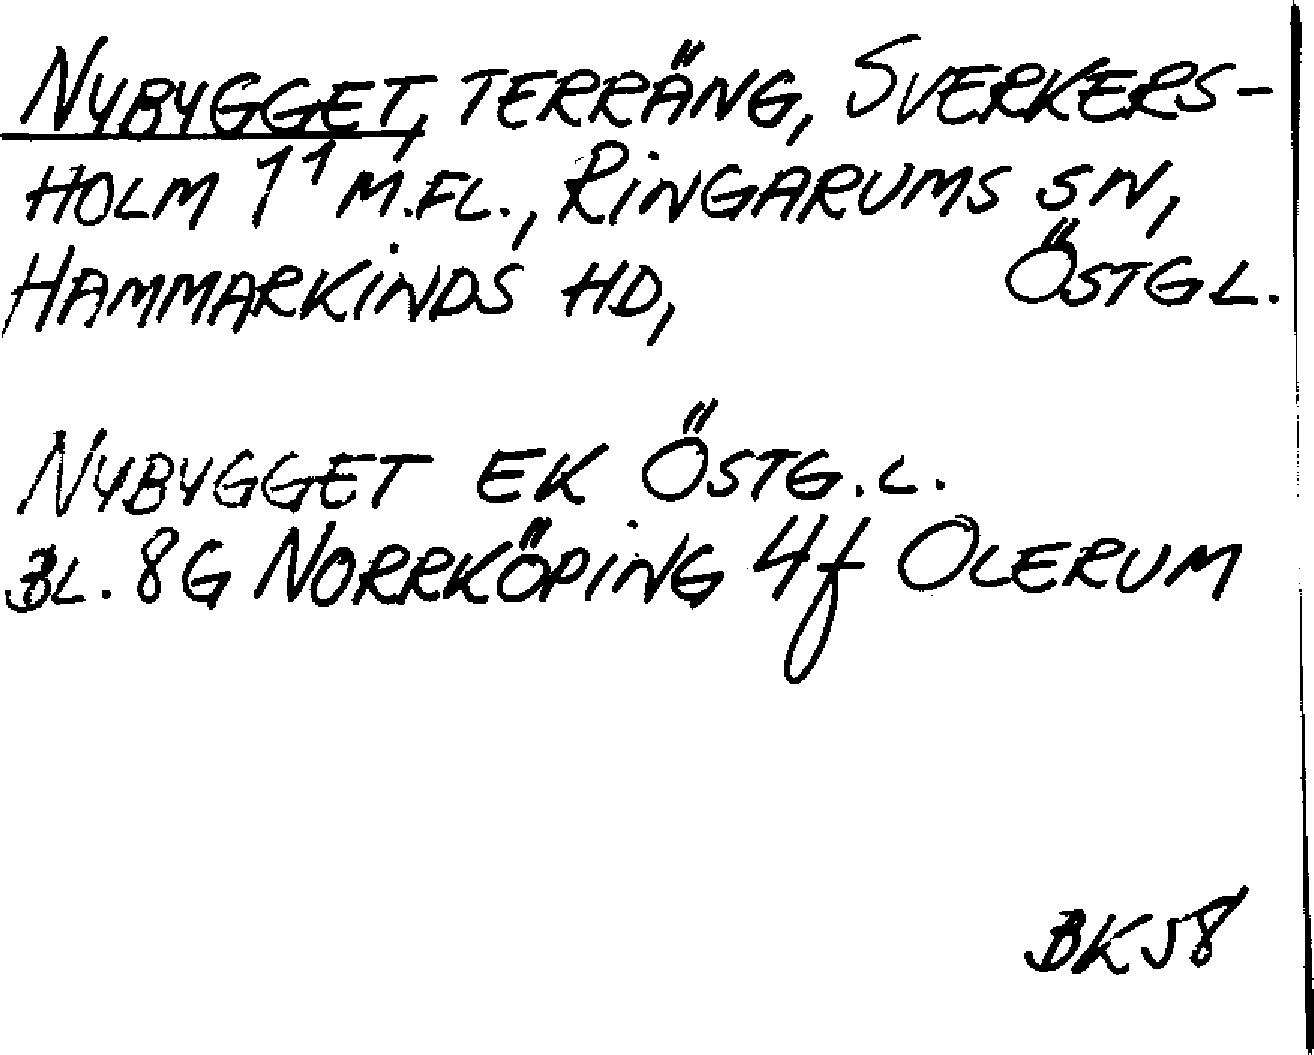 NYBYGGET, TERRÄNG, SVERKERS-
HOLM 1¹ M.FL., RINGARUMS SN,
HAMMARKINDS HD, ÖSTGL.
NYBYGGET EK ÖSTG.L.
BL. 8G NORRKÖPING 4f OLERUM
BK58